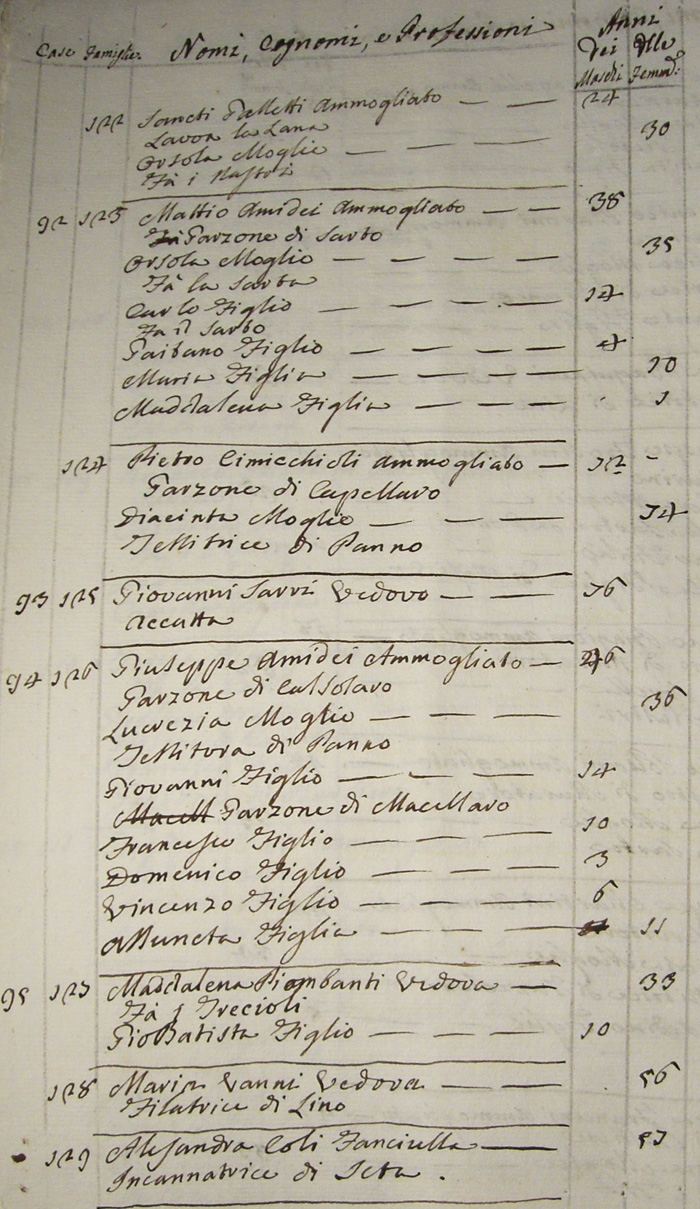 Case Famiglie Nomi, Cognomi, e Professioni Anni
Dei Maschi Delle Femm:
122 Sancti Palletti Ammogliato — — 24
Lavora la Lana
Orsola Moglie — — — 30
Fà i Nastri
92 123 Mattio Amidei Ammogliato — — 38
Garzone di Sarto
Orsola Moglio — — — — 35
Fà la Sarta
Carlo Figlio — — — — 14
Fa il Sarto
Gaitano Figlio — — — — 4
Maria Figlia — — — — 10
Maddalena Figlia — — — 1
124 Pietro Cimicchioli Ammogliato —
Garzone di Capellaro
Diacinta Moglio — — — 74
Tessitrice di Panno
93 125 Giovanni Sarri Vedovo — — 76
Accatta
94 126 Giuseppe Amidei Ammogliato — 46
Garzone di Calsolaro
Lucrezia Moglio — — — 36
Tessitora di Panno
Giovanni Figlio — — — 14
Macell Garzone di Macellaro
Francesco Figlio — — — — 10
Domenico Figlio — — — — 3
Vincenzo Figlio — — — — 6
Assunta Figlia — — — 11
95 127 Maddalena Piombanti Vedova — 33
Fà i Trecioli
GioBatista Figlio — — — — 10
128 Maria Vanni Vedova — — 56
Filatrice di Lino
129 Alesandra Coli Fanciulla — 57
Incannatrice di Seta .